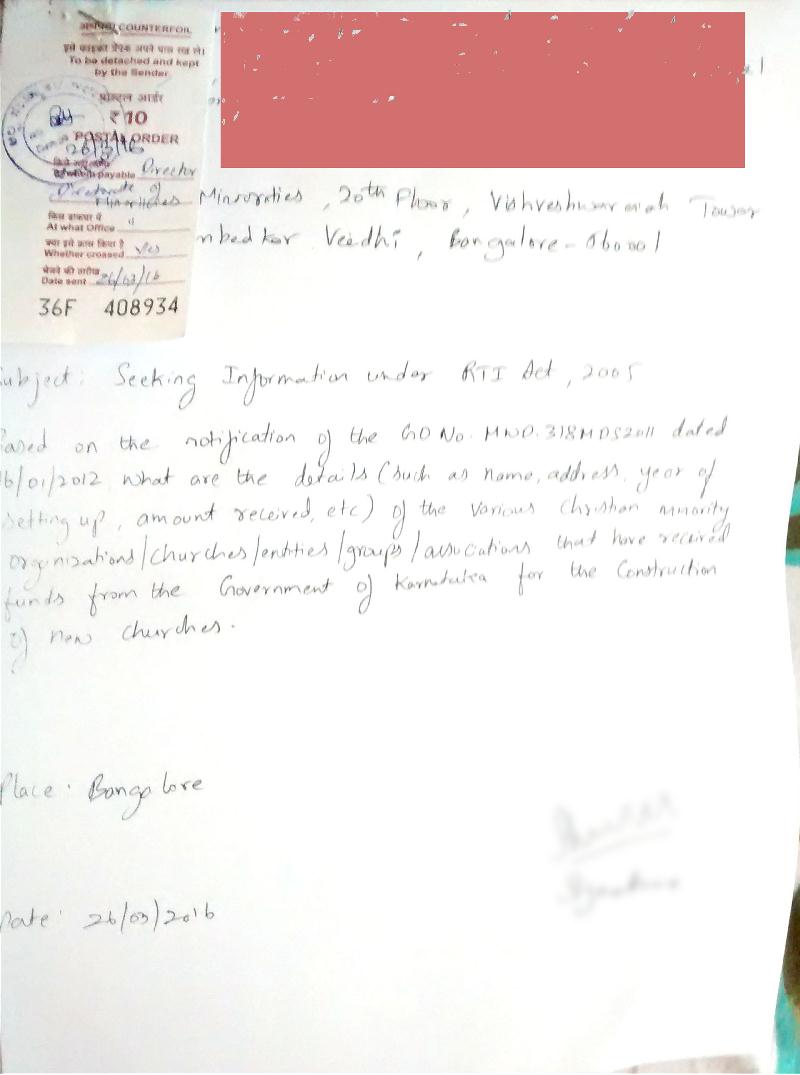 COUNTERFOIL
To be detached and kept
by the Sender
पोस्टल आर्डर
₹ 10
POSTAL ORDER
26/3/16
payable Director
Directorate of
Minorities
किस डाकघर में
At what Office
क्या इसे क्रास किया है
Whether crossed Yes
भेजने की तारीख
Date sent 26/03/16
36F 408934
Minorities, 20th Floor, Vishveshwaraiah Tower
nbedkar Veedhi, Bangalore - 560001
ubject: Seeking Information under RTI Act, 2005
ased on the notification of the GO No. MWD.318MDS2011 dated
16/01/2012 what are the details (such as name, address, year of
setting up, amount received, etc) of the various Christian minority
organizations/churches/entities/groups/associations that have received
funds from the Government of Karnataka for the Construction
of new churches.
Place: Bangalore
Date: 26/03/2016